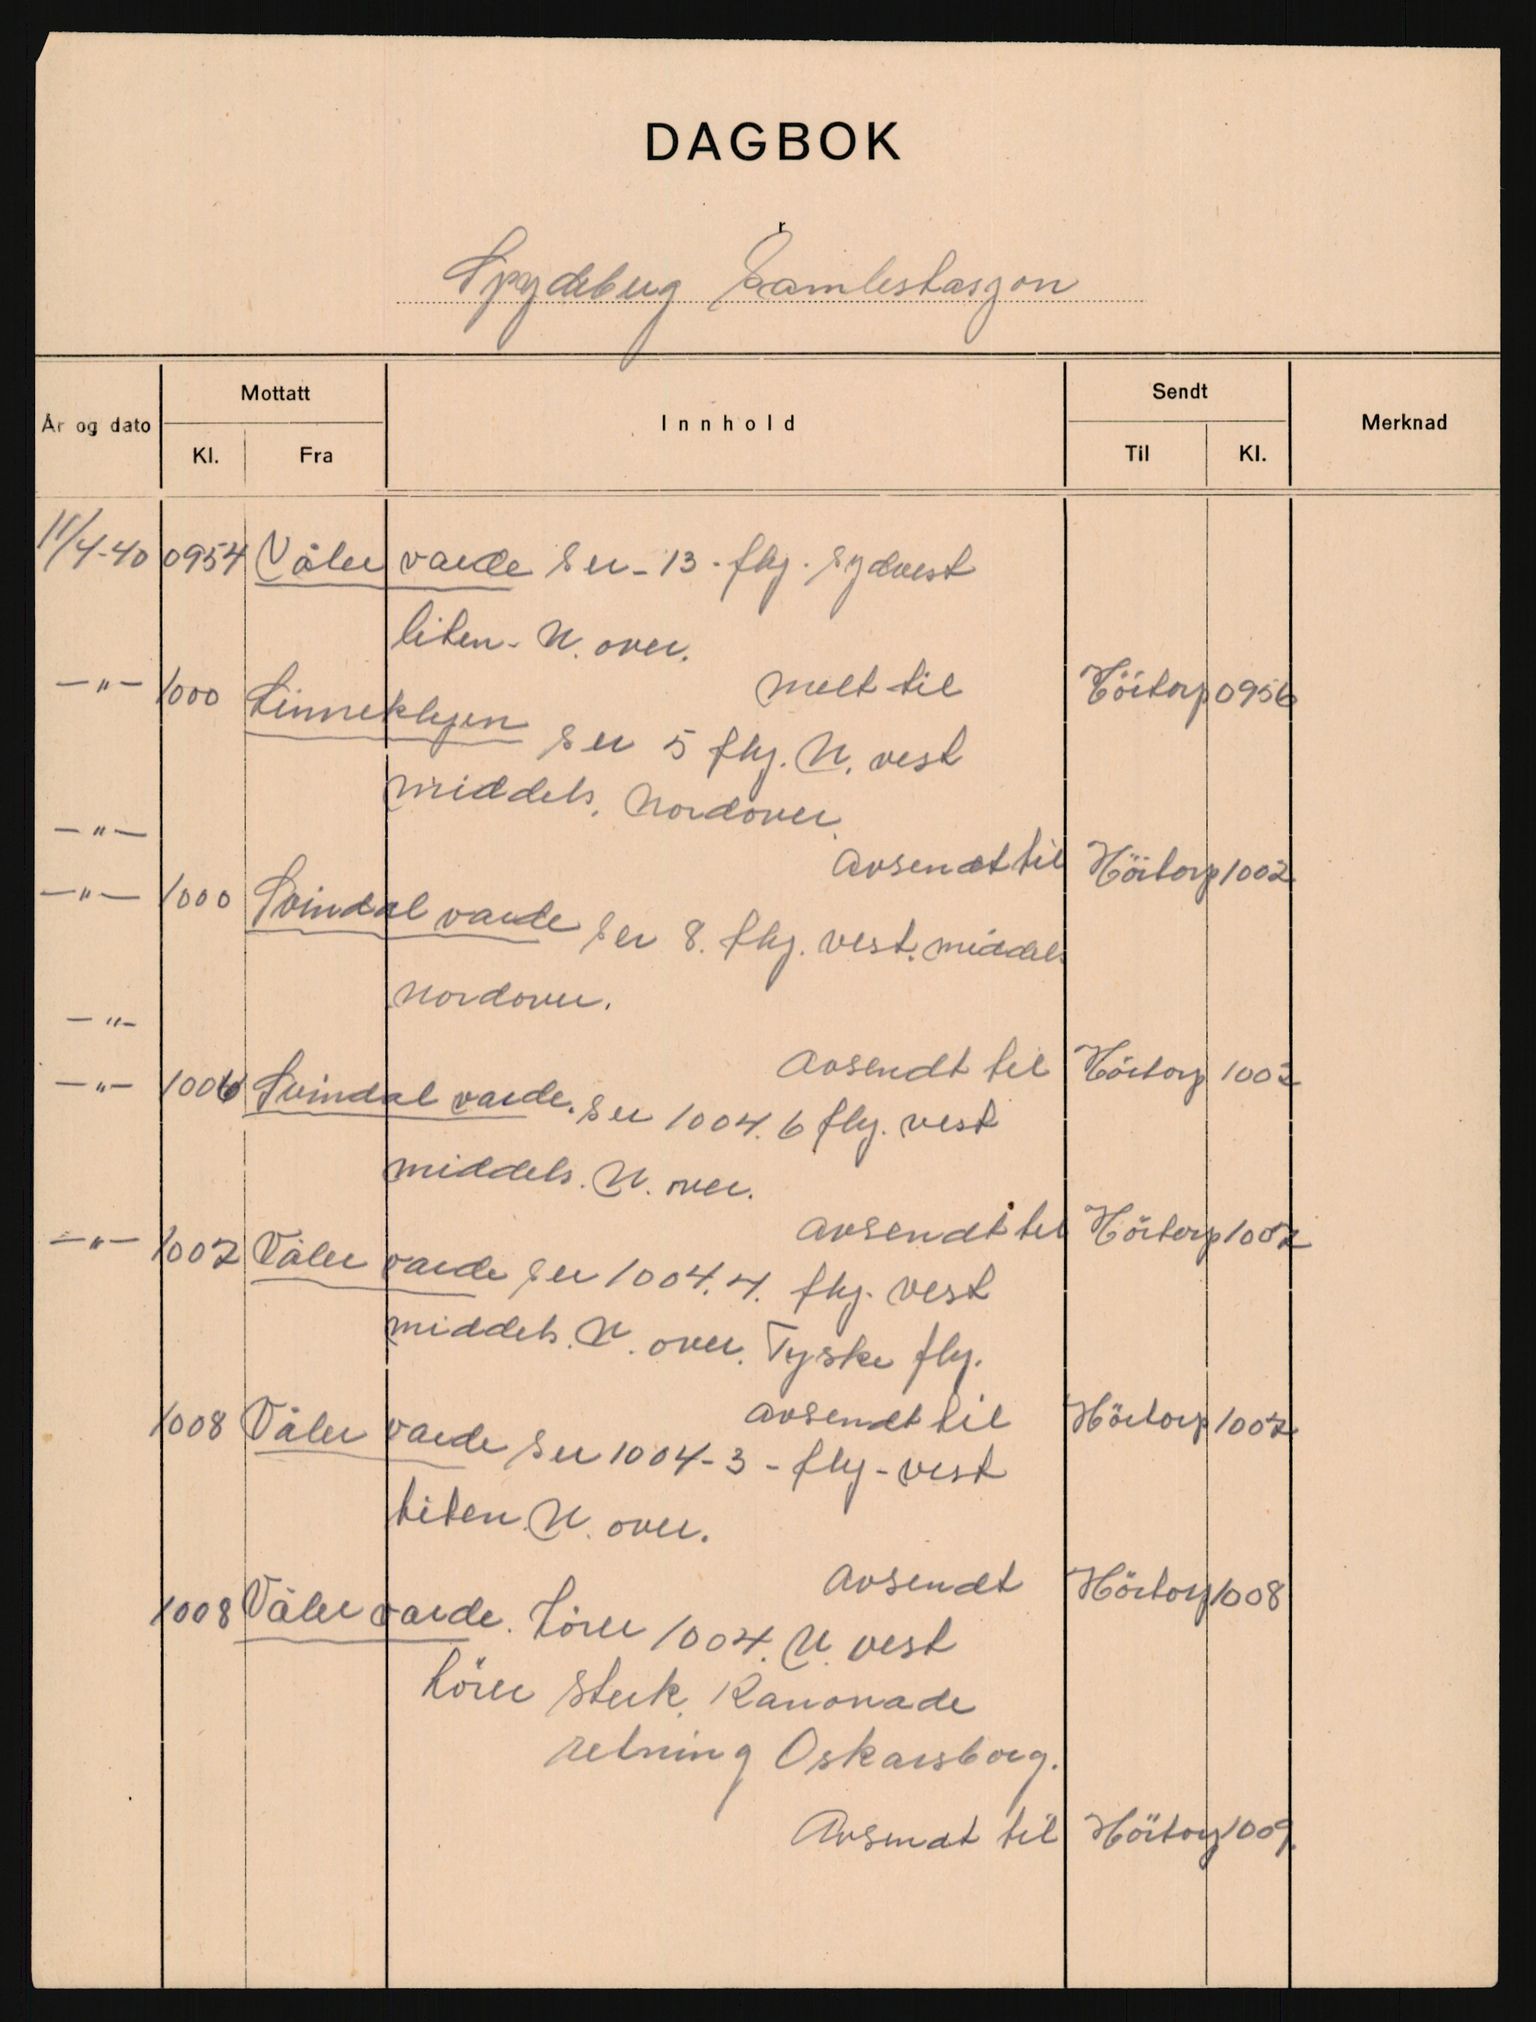 DAGBOK
Spydeberg Samlestasjon
År og dato Mottatt Kl. Fra Innhold Sendt Til Kl. Merknad
11/4-40 0954 Våler varde ser - 13 - flg. sydvest
liten - N. over.
melt til Höitorp 0956
—"— 1000 Linnekleppen ser 5 flg. N. vest
middels. Nordover.
—"— avsendt til Höitorp 1002
—"— 1000 Svindal varde ser 8. flg. vest. middels
nordover.
—"— avsendt til Höitorp 1002
—"— 1006 Svindal varde. ser 1004. 6 flg. vest
middels. N. over.
avsendt til Höitorp 1007
—"— 1007 Våler varde ser 1004. 4. flg. vest
middels. N. over. Tyske flg.
avsendt til Höitorp 1007
1008 Våler varde ser 1004 - 3 - flg - vest
liten. N. over.
avsendt Höitorp 1008
1008 Våler varde. hörer 1004. N. vest
hörer sterk. Kanonade
retning Oskarsborg.
Avsendt til Höitorp 1009.